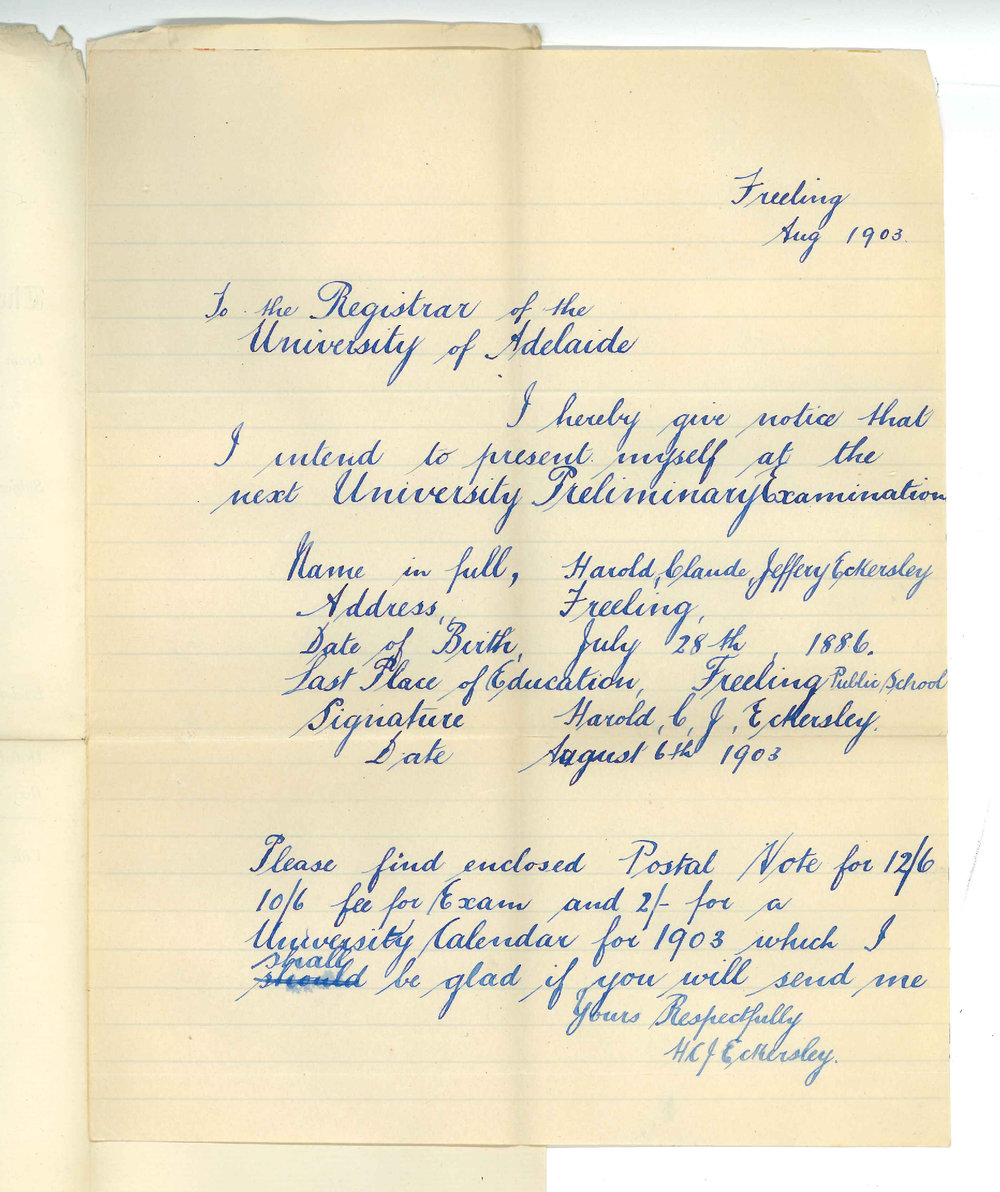 Freeling
Aug 1903.
To the Registrar of the
University of Adelaide
I hereby give notice that
I intend to present myself at the
next University Preliminary Examination
Name in full, Harold, Claude, Jeffery Eckersley
Address, Freeling,
Date of Birth, July 28th, 1886.
Last Place of Education, Freeling Public School
Signature Harold, C, J, Eckersley.
Date August 6th 1903
Please find enclosed Postal Note for 12/6
10/6 fee for Exam and 2/- for a
University Calendar for 1903 which I
shall
should be glad if you will send me
Yours Respectfully
H C J Eckersley.